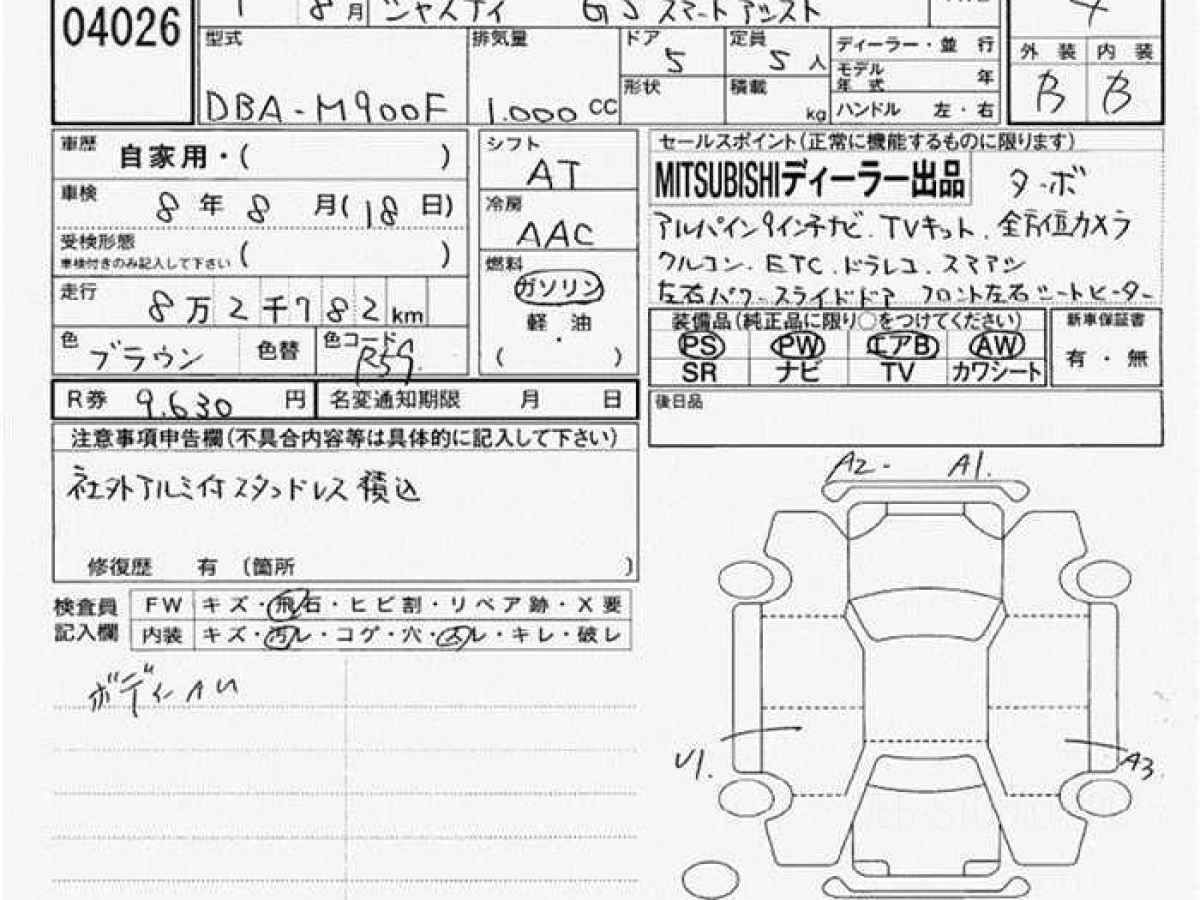 04026
8月 ジャスティ GS スマートアシスト
型式 DBA-M900F
排気量 1.000 CC
ドア 5
定員 5 人
形状
積載 kg
ディーラー・並 行
モデル年式 年
ハンドル 左・右
4
外 装 内 装
B B
車歴 自家用・( )
車検 8 年 8 月( 18 日)
受検形態
車検付きのみ記入して下さい ( )
走行 8 万 2 千 7 8 2 km
色 ブラウン 色替 色コード R59.
シフト
AT
冷房
AAC
燃料
ガソリン
軽・油
( )
セールスポイント(正常に機能するものに限ります)
MITSUBISHIディーラー出品 ターボ
アルパイン9インチナビ. TVキット. 全方位カメラ
クルコン. ETC. ドラレコ. スマアシ
左右パワースライドドア フロント左右シートヒーター
装備品(純正品に限り○をつけてください)
PS PW エアB AW
SR ナビ TV カワシート
新車保証書
有・無
R券 9.630 円 名変通知期限 月 日
後日品
注意事項申告欄(不具合内容等は具体的に記入して下さい)
社外アルミ付スタッドレス積込
修復歴 有 (箇所 )
検査員記入欄
FW キズ・飛石・ヒビ割・リペア跡・X要
内装 キズ・汚レ・コゲ・穴・スレ・キレ・破レ
ボディー
A2- A1.
U1. A3.